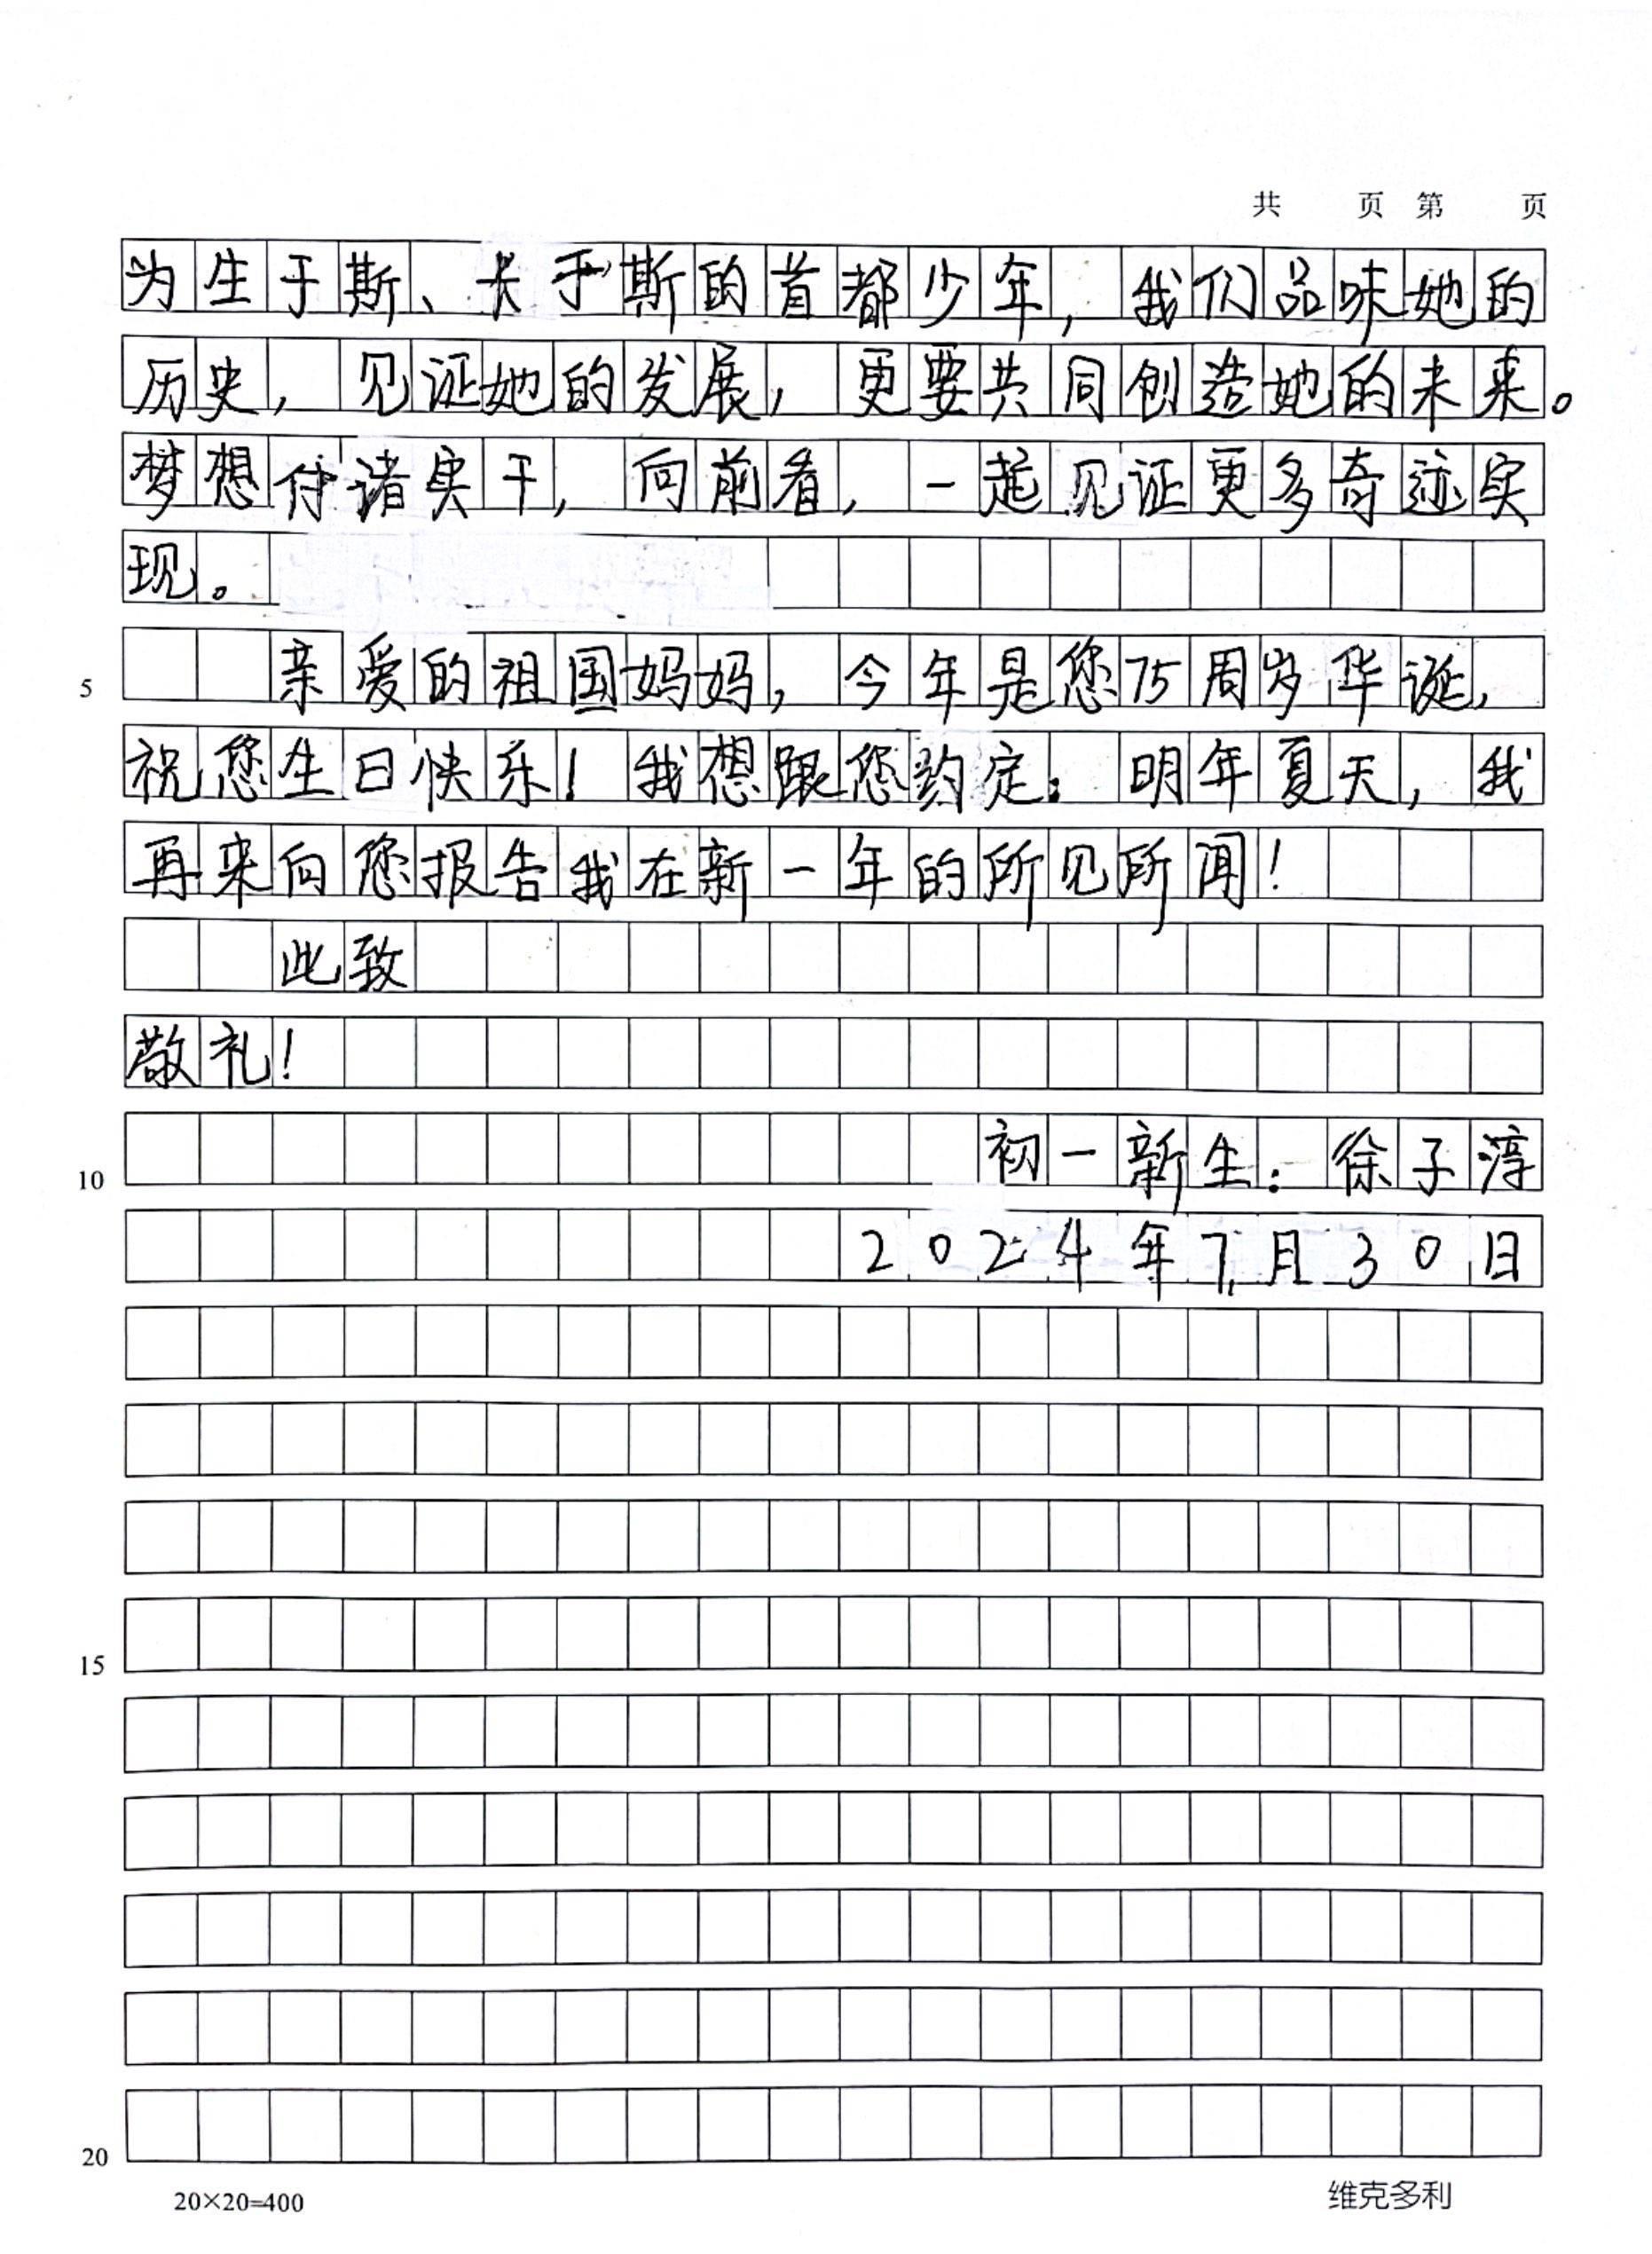 共 页 第 页
为生于斯、长于斯的首都少年，我们品味她的
历史，见证她的发展，更要共同创造她的未来。
梦想付诸实干，向前看，一起见证更多奇迹实
现。
亲爱的祖国妈妈，今年是您75周岁华诞，
5
祝您生日快乐！我想跟您约定：明年夏天，我
再来向您报告我在新一年的所见所闻！
此致
敬礼！
初一新生：徐子淳
10
2024年7月30日
15
20
20×20=400
维克多利